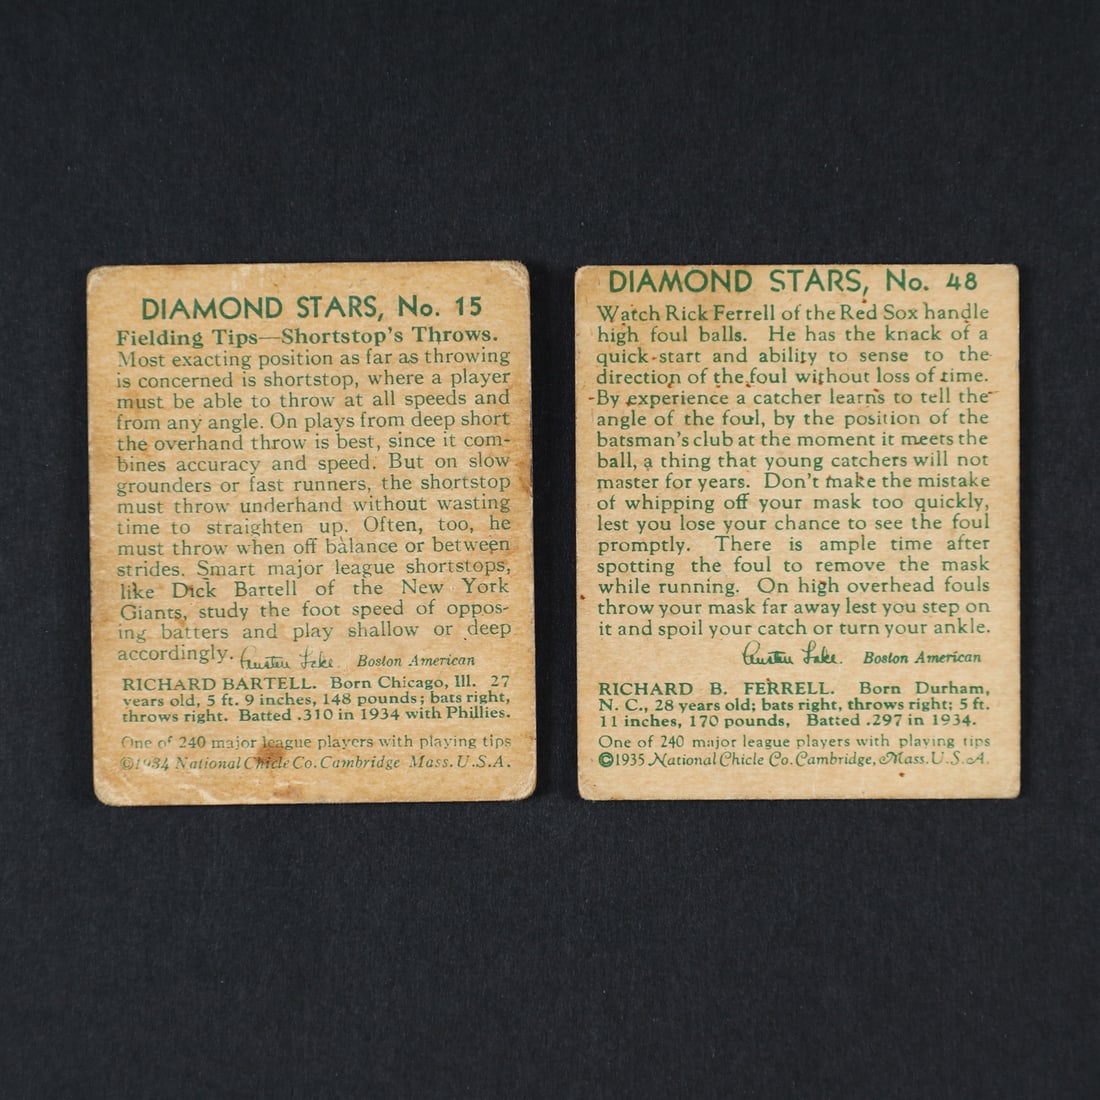 DIAMOND STARS, No. 15
Fielding Tips—Shortstop's Throws.
Most exacting position as far as throwing
is concerned is shortstop, where a player
must be able to throw at all speeds and
from any angle. On plays from deep short
the overhand throw is best, since it com-
bines accuracy and speed. But on slow
grounders or fast runners, the shortstop
must throw underhand without wasting
time to straighten up. Often, too, he
must throw when off balance or between
strides. Smart major league shortstops,
like Dick Bartell of the New York
Giants, study the foot speed of oppos-
ing batters and play shallow or deep
accordingly. Austen Lake. Boston American
RICHARD BARTELL. Born Chicago, Ill. 27
years old, 5 ft. 9 inches, 148 pounds; bats right,
throws right. Batted .310 in 1934 with Phillies.
One of 240 major league players with playing tips
©1934 National Chicle Co. Cambridge Mass. U.S.A.
DIAMOND STARS, No. 48
Watch Rick Ferrell of the Red Sox handle
high foul balls. He has the knack of a
quick start and ability to sense to the
direction of the foul without loss of time.
By experience a catcher learns to tell the
angle of the foul, by the position of the
batsman's club at the moment it meets the
ball, a thing that young catchers will not
master for years. Don't make the mistake
of whipping off your mask too quickly,
lest you lose your chance to see the foul
promptly. There is ample time after
spotting the foul to remove the mask
while running. On high overhead fouls
throw your mask far away lest you step on
it and spoil your catch or turn your ankle.
Austen Lake. Boston American
RICHARD B. FERRELL. Born Durham,
N. C., 28 years old; bats right, throws right; 5 ft.
11 inches, 170 pounds, Batted .297 in 1934.
One of 240 major league players with playing tips
©1935 National Chicle Co. Cambridge, Mass. U.S.A.